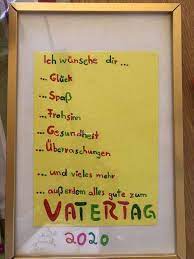 Ich wünsche dir...
...Glück
...Spaß
...Frohsinn
...Gesundheit
...Überraschungen
...und vieles mehr
...außerdem alles gute zum
VATERTAG
2020